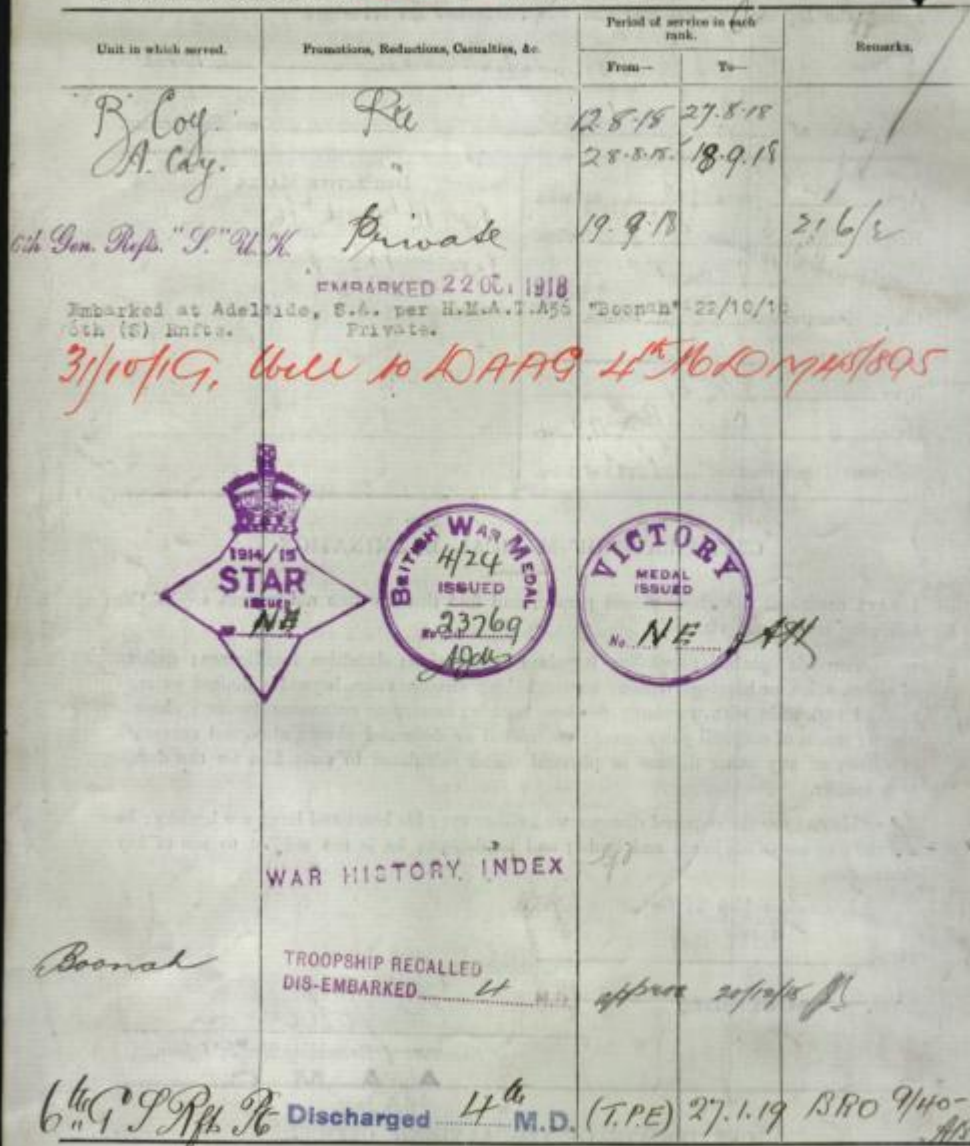 Unit in which served. Promotions, Reductions, Casualties, &c. Period of service in each rank. Remarks.
From— To—
B Coy. Rec 12.8.18 27.8.18
A. Coy. " 28.8.18. 18.9.18
6th Gen. Refts. "S." U.K. Private 19.9.18
EMBARKED 22 OCT 1918
Embarked at Adelaide, S.A. per H.M.A.T.A36 "Boonah" 22/10/18
6th (S) Rnfts. Private.
31/10/19, Will to DAAG 4th MD
1914/15
STAR
ISSUED
No NE
BRITISH WAR MEDAL
4/24
ISSUED
No. 23769
VICTORY
MEDAL
ISSUED
No. NE
WAR HISTORY INDEX
Boonah TROOPSHIP RECALLED
DIS-EMBARKED 4 M.D. 20/12/18
6th G S Rfts Pte Discharged 4th M.D. (T.P.E) 27.1.19 BRO 9/40-